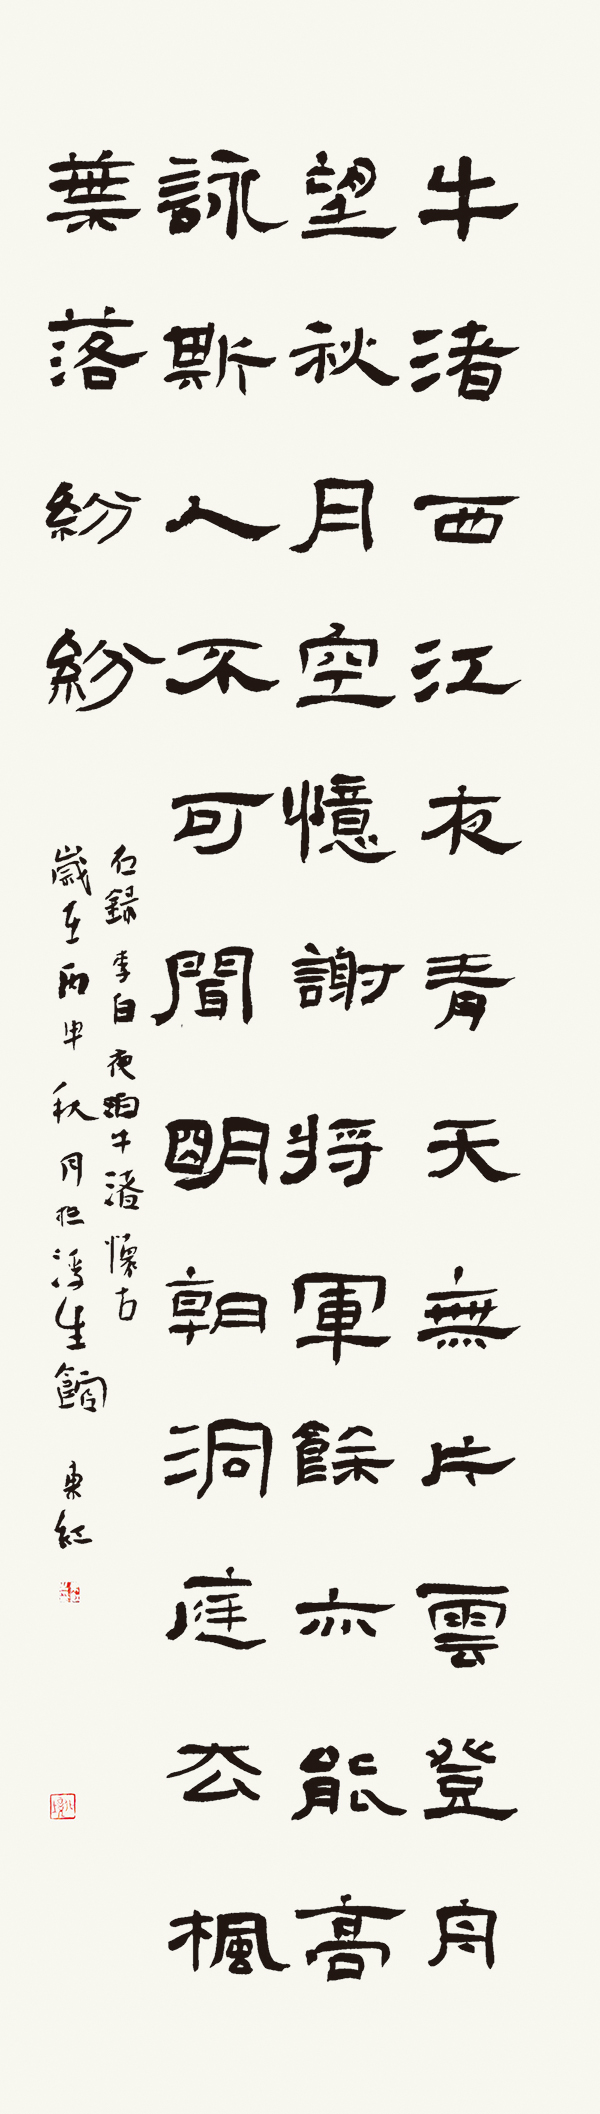 牛渚西江夜青天無片雲登舟
望秋月空憶謝將軍餘亦能高
詠斯人不可聞明朝洞庭去楓
葉落紛紛
右録李白夜泊牛渚懷古
歲在丙申秋月於 生館 東紅